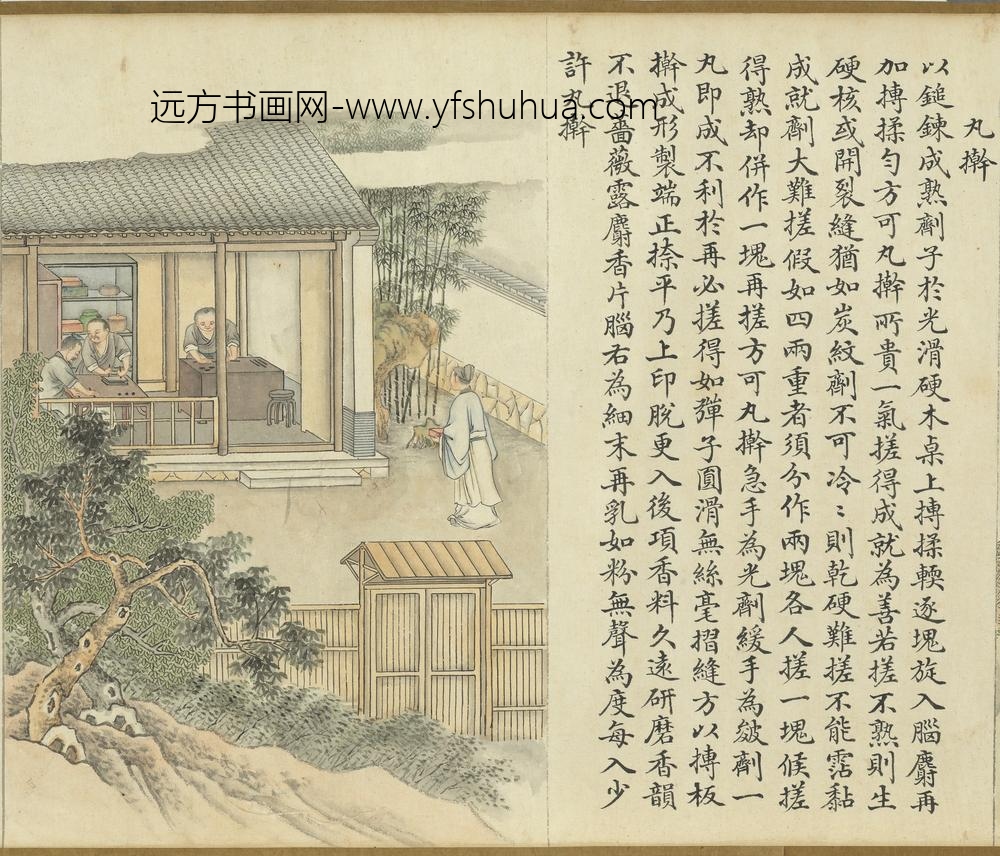 丸擀
以鎚鍊成熟劑子於光滑硬木桌上摶揉輭逐塊旋入腦麝再
加摶揉勻方可丸擀所貴一氣搓得成就為善若搓不熟則生
硬核或開裂縫猶如炭紋劑不可冷〻則乾硬難搓不能霑黏
成就劑大難搓假如四兩重者須分作兩塊各人搓一塊候搓
得熟却併作一塊再搓方可丸擀急手為光劑緩手為皴劑一
丸即成不利於再必搓得如彈子圓滑無絲毫摺縫方以摶板
擀成形製端正捺平乃上印脫更入後項香料久遠研磨香韻
不退薔薇露麝香片腦右為細末再乳如粉無聲為度每入少
許丸擀
远方书画网-www.yfshuhua.com